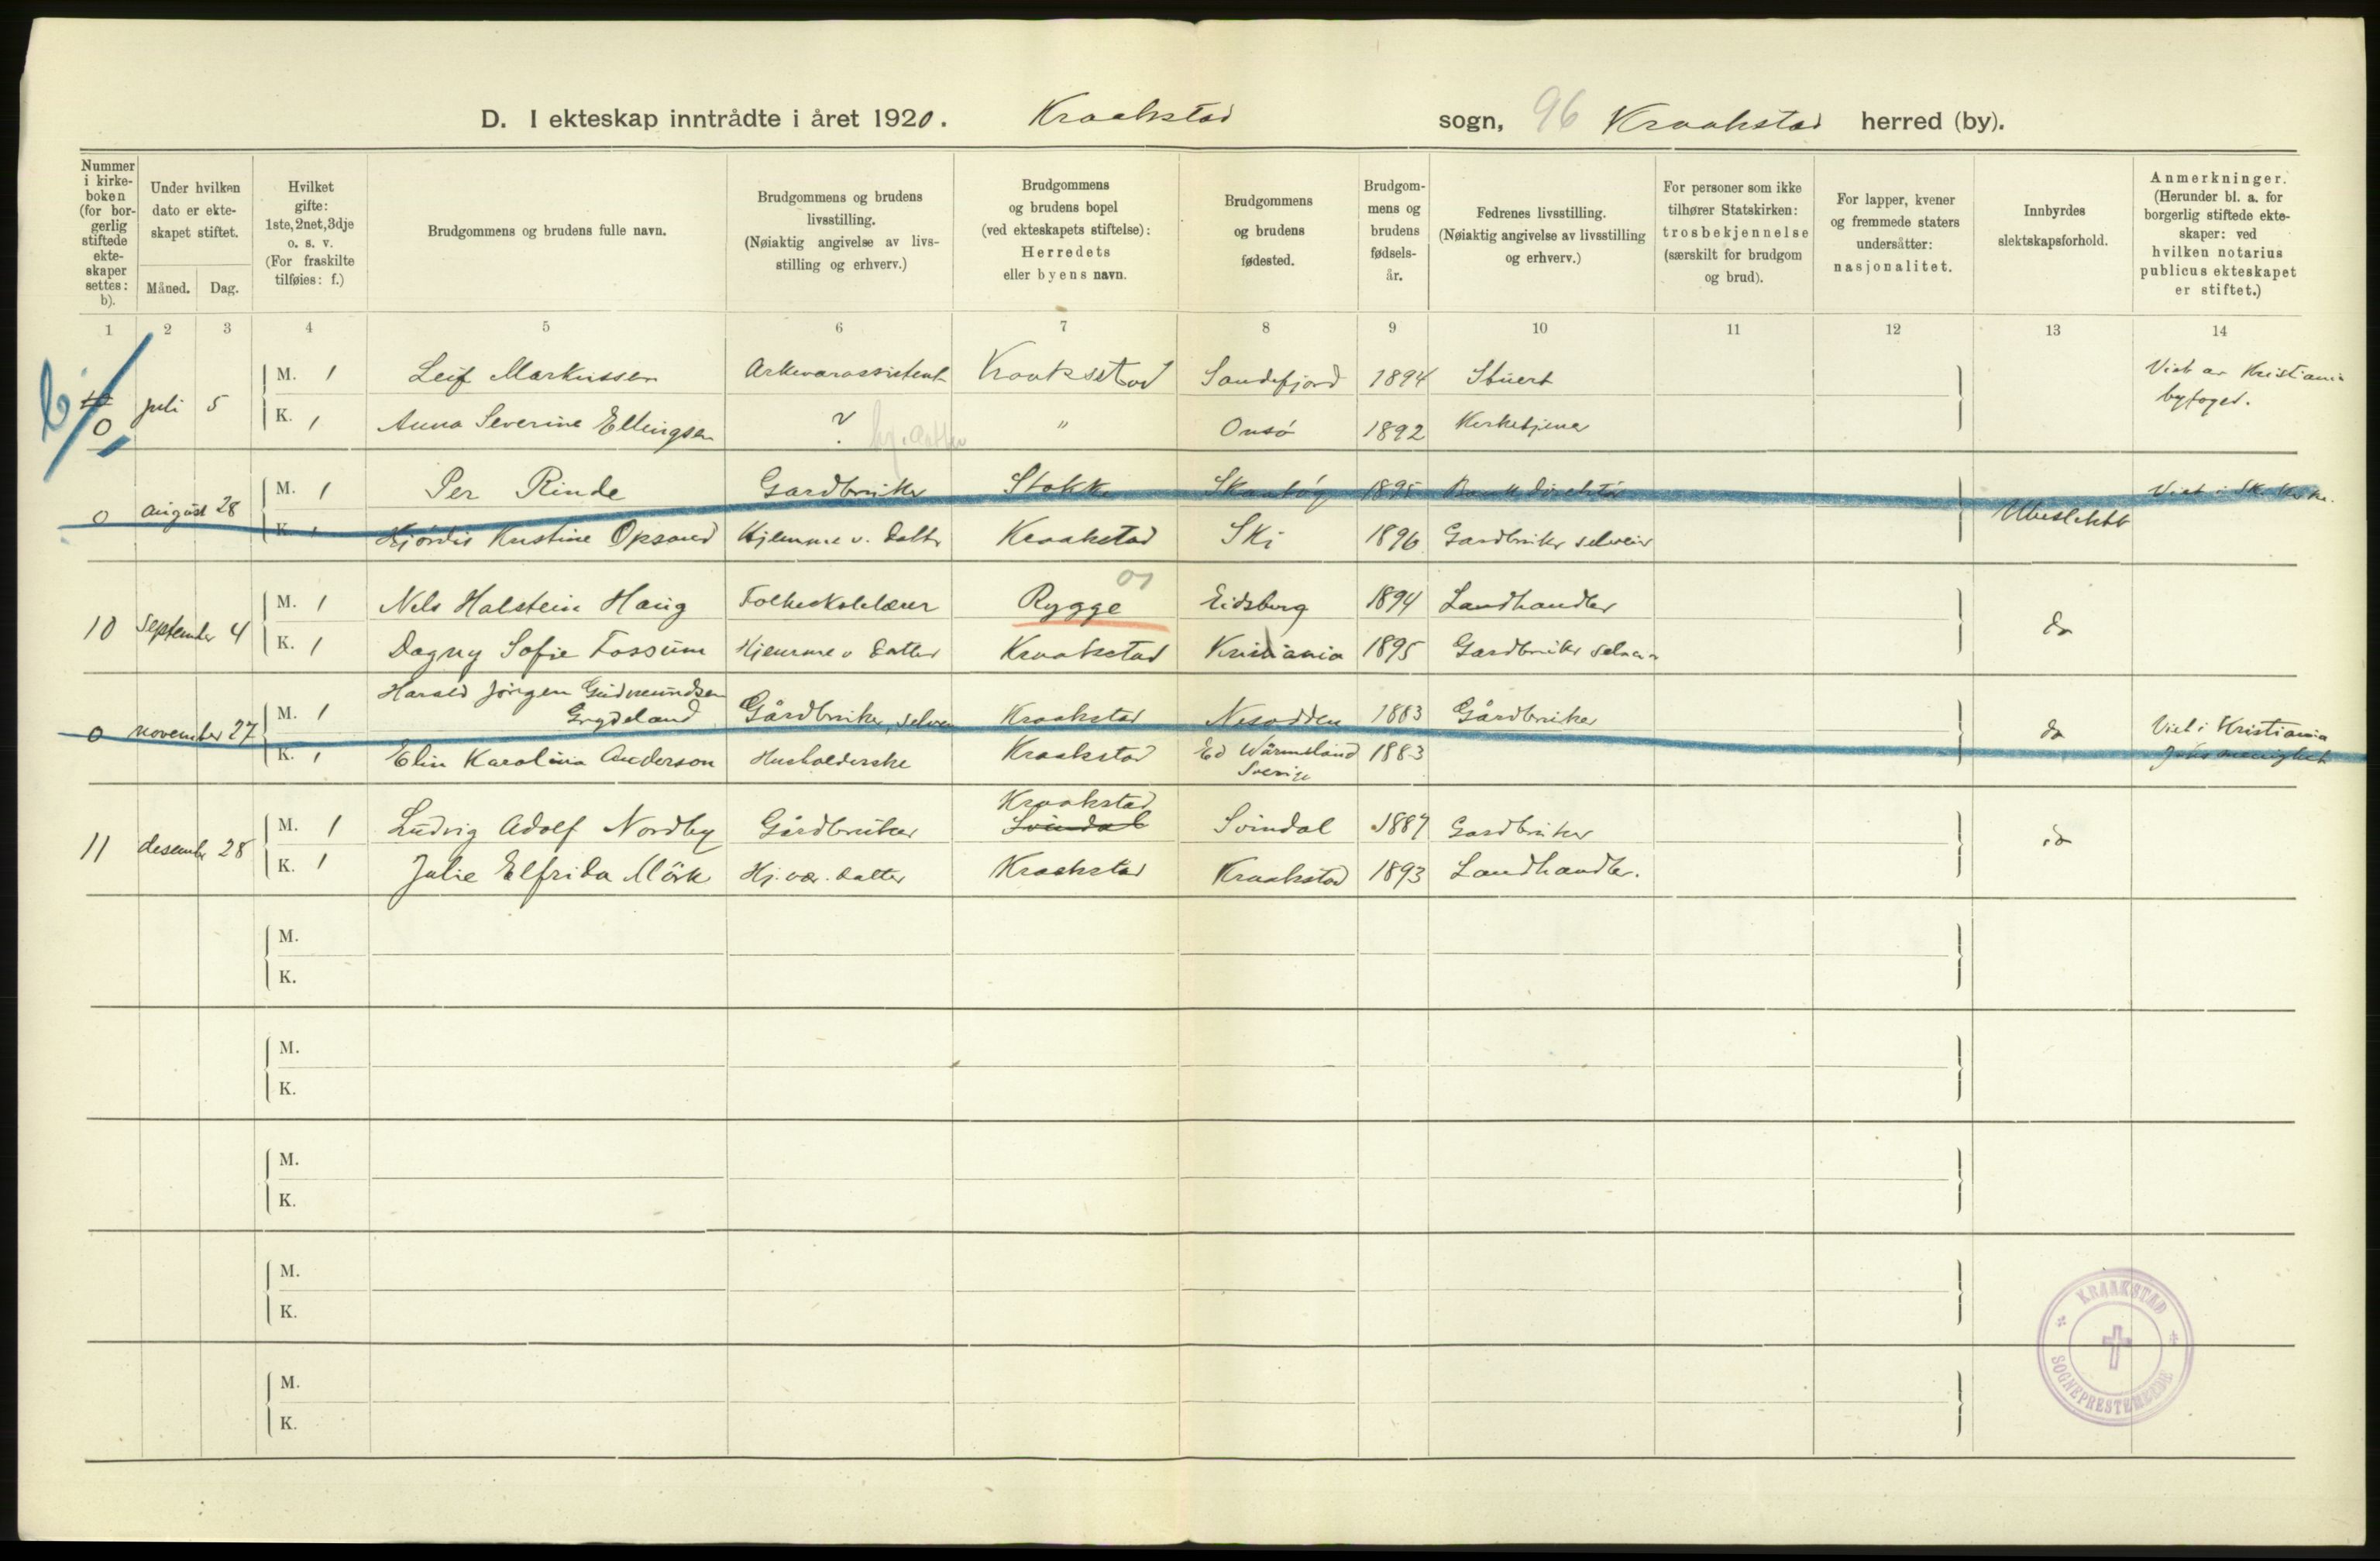 D. I ekteskap inntrådte i året 1920. Kraakstad sogn, 96 Kraakstad herred (by).
Nummer i kirke- boken (for bor- gerlig stiftede ekte- skaper settes: b).
Under hvilken dato er ekte- skapet stiftet.
Måned. Dag.
Hvilket gifte: 1ste, 2net, 3dje o. s. v. (For fraskilte tilføies: f.)
Brudgommens og brudens fulle navn.
Brudgommens og brudens livsstilling. (Nøiaktig angivelse av livs- stilling og erhverv.)
Brudgommens og brudens bopel (ved ekteskapets stiftelse): Herredets eller byens navn.
Brudgommens og brudens fødested.
Brudgom- mens og brudens fødsels- år.
Fedrenes livsstilling. (Nøiaktig angivelse av livsstilling og erhverv.)
For personer som ikke tilhører Statskirken: trosbekjennelse (særskilt for brudgom og brud).
For lapper, kvener og fremmede staters undersåtter: nasjonalitet.
Innbyrdes slektskapsforhold.
Anmerkninger. (Herunder bl. a. for borgerlig stiftede ekte- skaper: ved hvilken notarius publicus ekteskapet er stiftet.)
1 2 3 4 5 6 7 8 9 10 11 12 13 14
M. 1 Leif Markussen Kraakstad Sandefjord 1894 Stuert Viet av Kristiania
b. 0 juli 5 byfoged.
K. 1 Anna Severine Ellingsen ? hj. datter " Onsö 1892 Kirketjener
M. 1 Per Rinde Gardbruker Stokke 1895 Bankdirektör Viet i Sk. kirke.
0 august 28 Ubeslektet
K. 1 Hjördis Kristine Opsand Hjemme v. datter Kraakstad Ski 1896 Gardbruker selveier
M. 1 Nils Halstein Haug Folkeskolelærer Rygge 01 Eidsberg 1894 Landhandler
10 September 4 do
K. 1 Dagny Sofie Fossum Hjemme v datter Kraakstad Kristiania 1895 Gardbruker selveier
Harald Jörgen Gudmundsen
M. 1 Grydeland Gårdbruker, selveier Kraakstad Nesodden 1883 Gårdbruker
0 november 27 do Viet i Kristiania
K. 1 Elin Karolina Anderson Husholderske Kraakstad Ed Wärmsland 1883 menighet
Sverige
Kraakstad
M. 1 Ludvig Adolf Nordby Gårdbruker Svindal Svindal 1887 Gardbruker
11 desember 28 do
K. 1 Julie Elfrida Mörk Hj. vær. datter Kraakstad Kraakstad 1893 Landhandler.
M.
K.
M.
K.
M.
K.
M.
K.
M.
K.
KRAAKSTAD
SOGNEPRESTEMBEDE